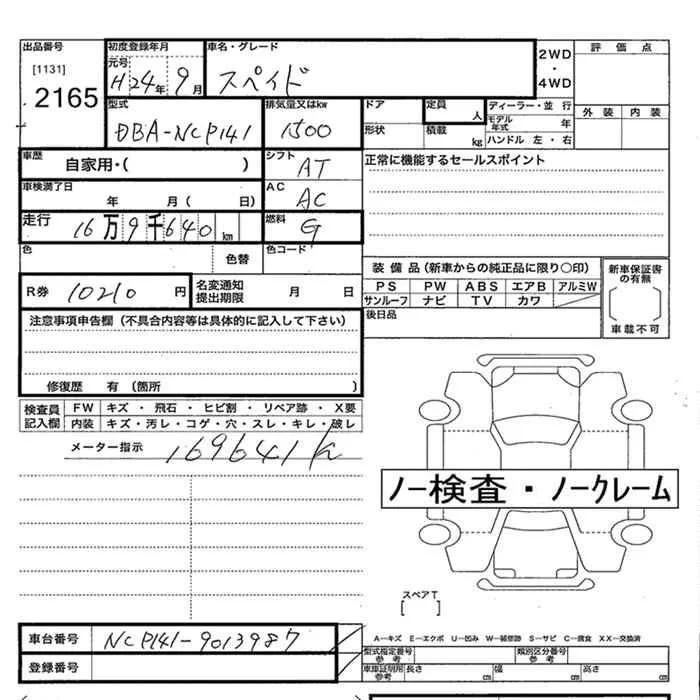 出品番号 初度登録年月 車名・グレード 評価点
[1131] 元号 2WD
・
2165 H24年 9月 スペイド 4WD
外装 内装
型式 排気量又はkw ドア 定員 人 ディーラー・並行
DBA-NCP141 1500 形状 積載 kg モデル年式 年
ハンドル 左・右
車歴 自家用・( ) シフト AT 正常に機能するセールスポイント
車検満了日 年 月 ( 日) AC AC
走行 16万9千640km 燃料 G
色 色替 色コード
装備品(新車からの純正品に限り○印) 新車保証書の有無
R券 10210円 名変通知提出期限 月 日 PS PW ABS エアB アルミW
サンルーフ ナビ TV カワ 車載不可
注意事項申告欄 (不具合内容等は具体的に記入して下さい) 後日品
修復歴 有 (箇所 )
検査員記入欄 FW キズ ・ 飛石 ・ ヒビ割 ・ リペア跡 ・ X要
内装 キズ・汚レ・コゲ・穴・スレ・キレ・破レ
メーター指示 169641k
ノー検査・ノークレーム
スペアT
[ ]
車台番号 NCP141-9013987 A−キズ E−エクボ U−凹み W−補修跡 S−サビ C−腐食 XX−交換済
登録番号 型式指定番号参考 類別区分番号参考
車庫証明用参考 長さ cm 幅 cm 高さ cm